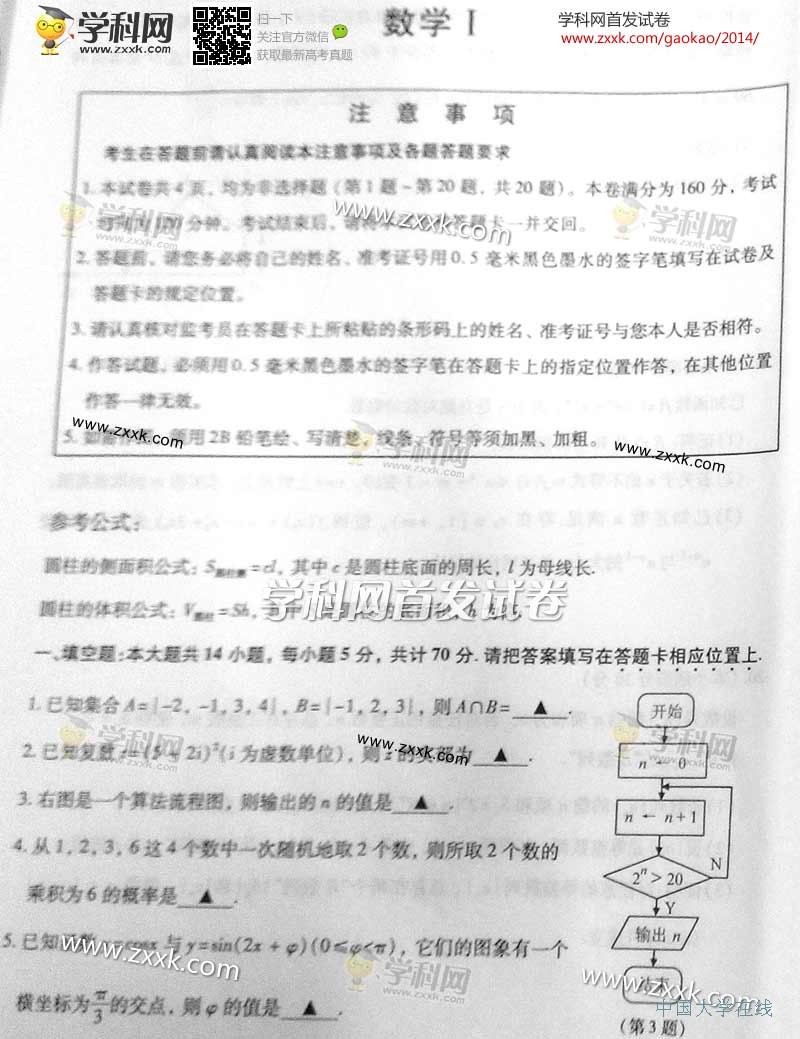 学科网
www.zxxk.com
扫一下
关注官方微信
获取最新高考真题
数学 I
学科网首发试卷
www.zxxk.com/gaokao/2014/
注 意 事 项
考生在答题前请认真阅读本注意事项及各题答题要求
1. 本试卷共 4 页，均为非选择题（第 1 题 ~ 第 20 题，共 20 题）。本卷满分为 160 分，考试
分钟。考试结束后，请将 答题卡一并交回。
2. 答题前，请您务必将自己的姓名、准考证号用 0.5 毫米黑色墨水的签字笔填写在试卷及
答题卡的规定位置。
3. 请认真核对监考员在答题卡上所粘贴的条形码上的姓名、准考证号与您本人是否相符。
4. 作答试题，必须用 0.5 毫米黑色墨水的签字笔在答题卡上的指定位置作答，在其他位置
作答一律无效。
5. 如需作图，须用 2B 铅笔绘、写清楚，线条、符号等须加黑、加粗。
学科网
www.zxxk.com
参考公式：
圆柱的侧面积公式：S圆柱侧=cl，其中 c 是圆柱底面的周长，l 为母线长.
圆柱的体积公式：V圆柱=Sh，
学科网首发试卷
一、填空题：本大题共 14 小题，每小题 5 分，共计 70 分. 请把答案填写在答题卡相应位置上.
1. 已知集合 A={-2, -1, 3, 4}，B={-1, 2, 3}，则 A∩B= ▲ .
2. 已知复数 (5 2i)²(i 为虚数单位)，则 z 的实部为 ▲ .
3. 右图是一个算法流程图，则输出的 n 的值是 ▲ .
4. 从 1, 2, 3, 6 这 4 个数中一次随机地取 2 个数，则所取 2 个数的
乘积为 6 的概率是 ▲ .
5. 已知函数 y=cosx 与 y=sin(2x + φ)(0≤φ<π)，它们的图象有一个
横坐标为π/3的交点，则 φ 的值是 ▲ .
开始
n ← 0
n ← n+1
2ⁿ > 20
N
Y
输出 n
结束
（第 3 题）
中国大学在线